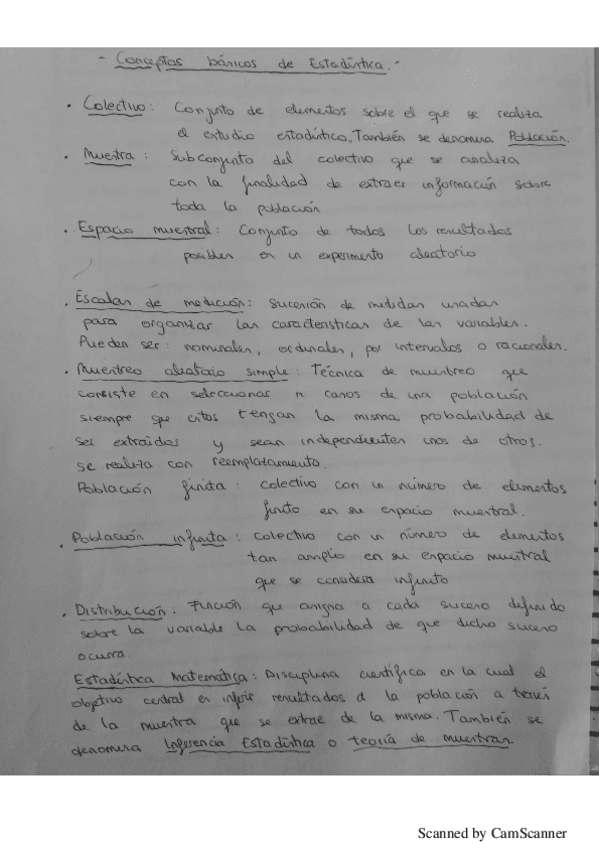 - Conceptos básicos de Estadística.-
• Colectivo: Conjunto de elementos sobre el que se realiza
el estudio estadístico. También se denomina Población.
• Muestra: Subconjunto del colectivo que se analiza
con la finalidad de extraer información sobre
toda la población
• Espacio muestral: Conjunto de todos los resultados
posibles en un experimento aleatorio
• Escalas de medición: Sucesión de medidas usadas
para organizar las características de las variables.
Pueden ser: nominales, ordinales, por intervalos o racionales.
• Muestreo aleatorio simple: Técnica de muestreo que
consiste en seleccionar n casos de una población
siempre que estos tengan la misma probabilidad de
ser extraidos y sean independientes unos de otros.
se realiza con reemplazamiento.
Población finita: colectivo con un número de elementos
finito en su espacio muestral.
• Población infinita: colectivo con un número de elementos
tan amplio en su espacio muestral
que se considera infinito
• Distribución: Función que asigna a cada suceso definido
sobre la variable la probabilidad de que dicho suceso
ocurra.
Estadística Matemática: Disciplina científica en la cual el
objetivo central es inferir resultados a la población a través
de la muestra que se extrae de la misma. También se
denomina Inferencia Estadística o teoría de muestras.
Scanned by CamScanner